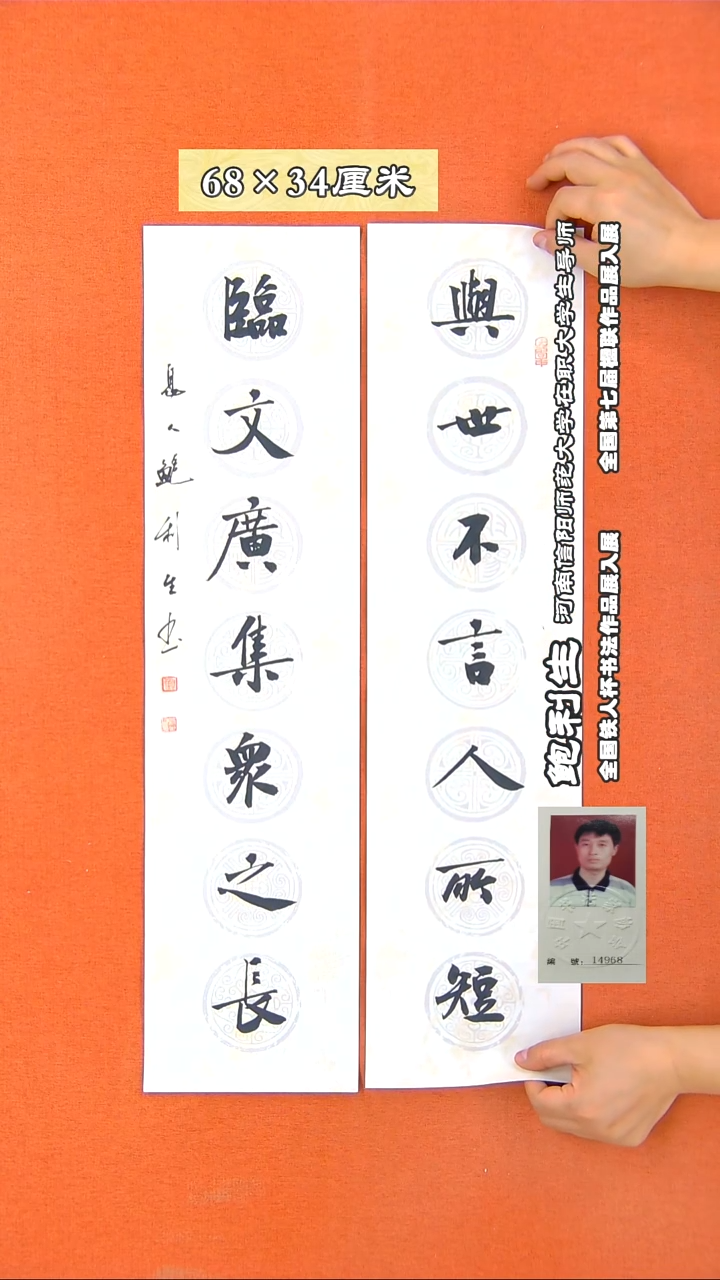 68×34厘米
與世不言人所短
臨文廣集眾之長
鮑利生书
鲍利生
河南信阳师范大学在职大学生导师
全国铁人杯书法作品展入展
全国第七届楹联作品展入展
編 號：14968